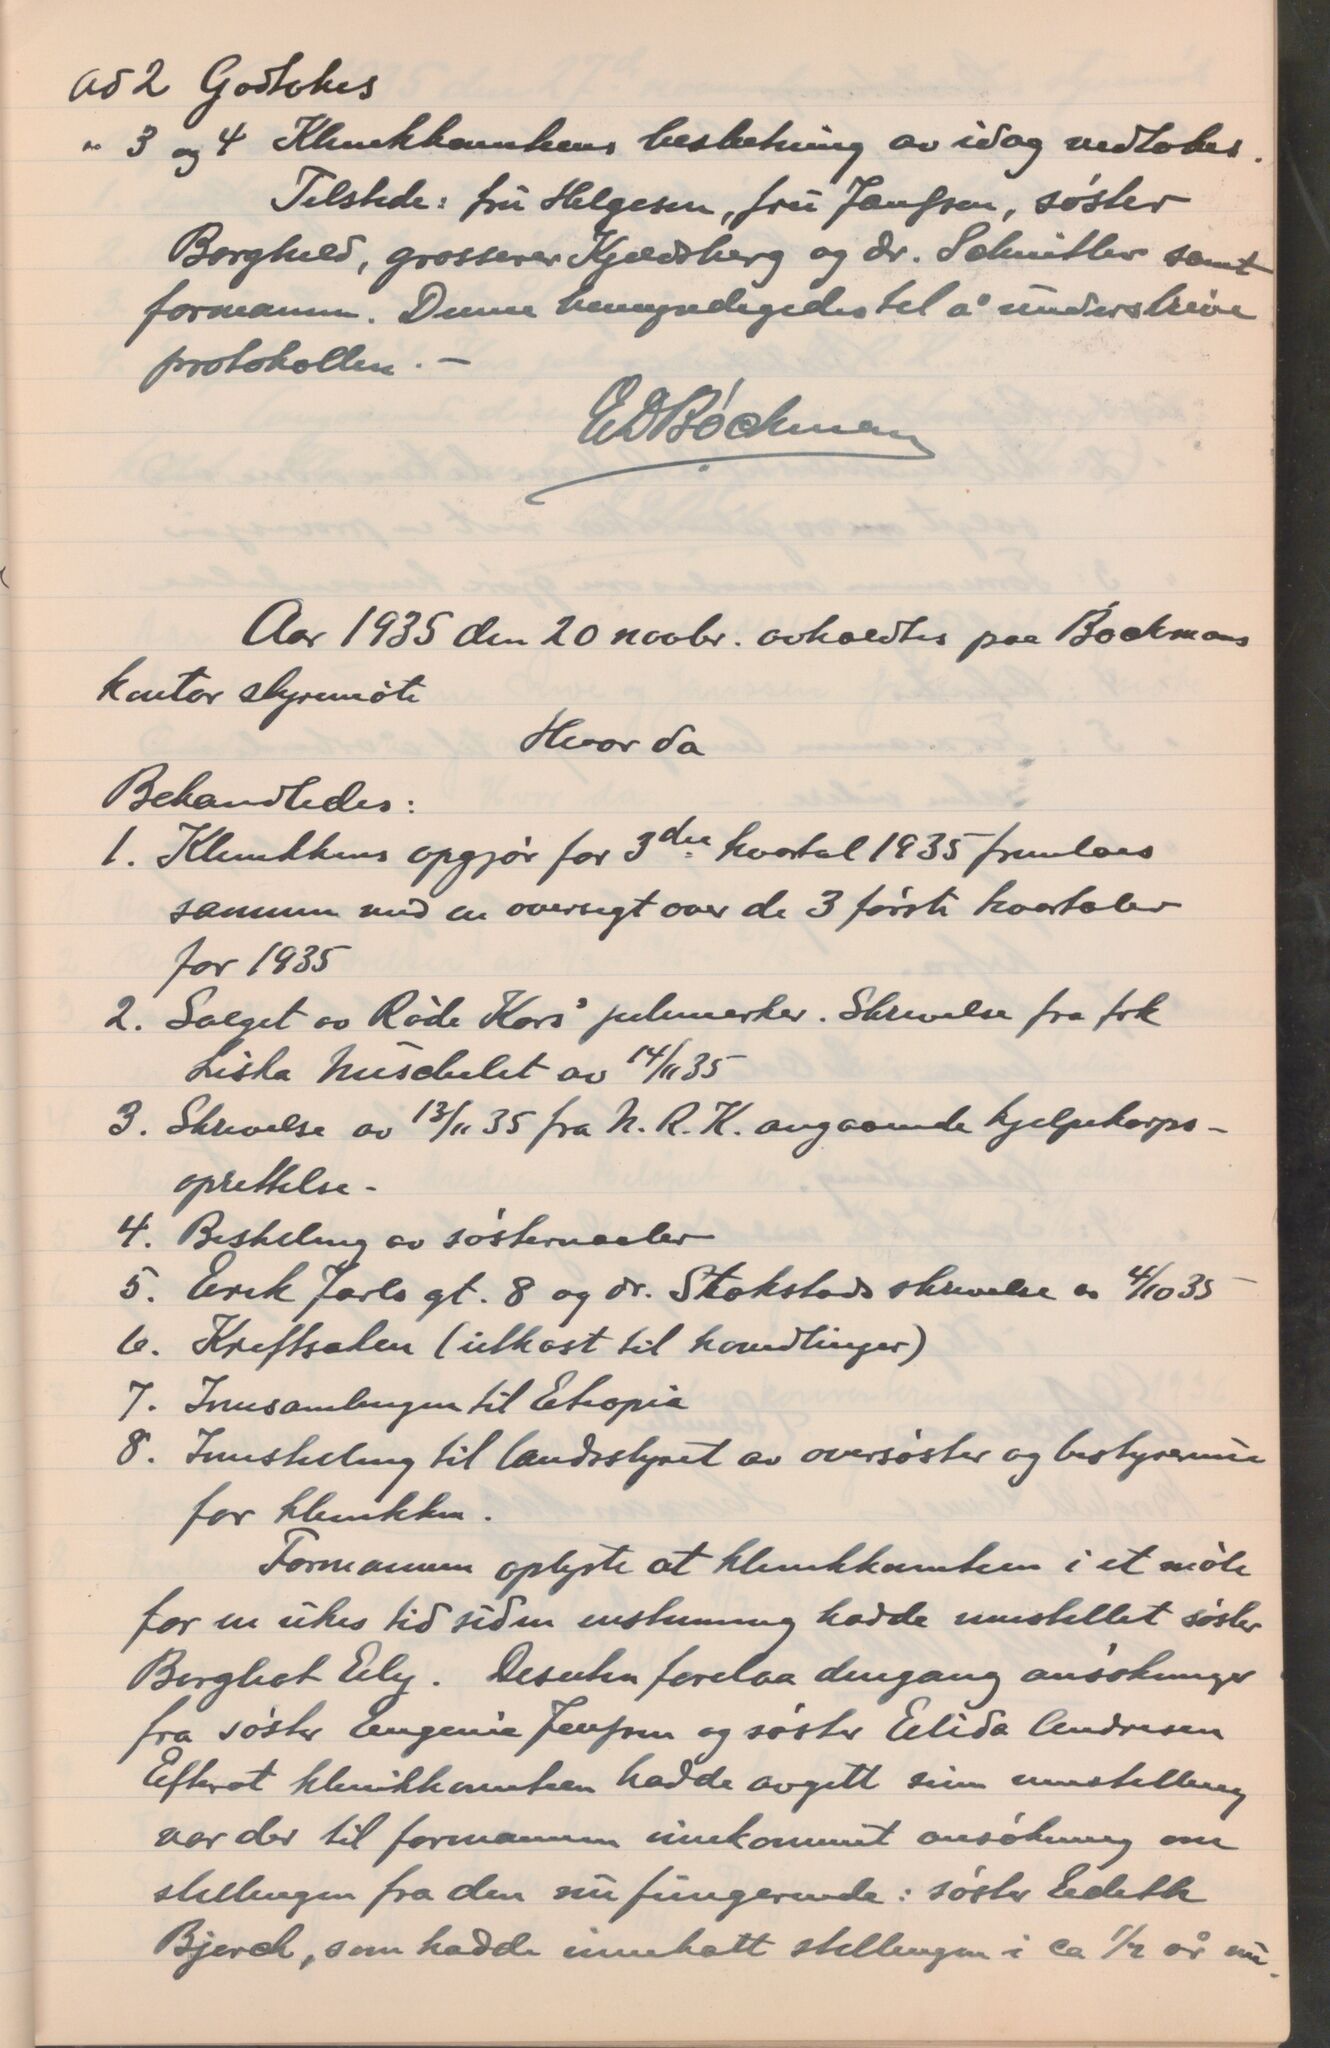 ad 2 Godtokes
" 3 og 4 Klinikkomiteens beslutning av idag vedtokes.
Tilstede: fru Helgesen, fru Jenssen, søster
Borghild, grosserer Kjeldsberg og dr. Schnitler samt
formannen. Denne bemyndigedes til å underskrive
protokollen. —
E D Bøckman
Aar 1935 den 20 novbr. avholdtes paa Bøckmans
kontor styremøte
Hvor da
Behandledes:
1. Klinikkens opgjør for 3dje kvartal 1935 fremlaes
sammen med en oversigt over de 3 første kvartaler
for 1935
2. Salget av Røde Kors' julemerker. Skrivelse fra frk
Liska av 14/11 35
3. Skrivelse av 13/11 35 fra N. R. K. angaaende hjelpekorps-
oprettelse -
4. Bestilling av søsternaaler
5. Erik Jarls gt. 8 og dr. Stokstads skrivelse av 4/10 35
6. Kreftsaken (utkast til handlinger)
7. Innsamlingen til Etiopia
8. Innstilling til landsstyret av oversøster og bestyrerinne
for klinikken.
Formannen oplyste at klinikkomiteen i et møte
for en ukes tid siden enstemmig hadde innstillet søster
Borghot Eely. Desuten forelaa dengang ansøkninger
fra søster Eugenie Jenssen og søster Elida Andresen
Efterat klinikkomiteen hadde avgitt sin innstilling
var der til formannen innkommet ansøkning om
stillingen fra den nu fungerende: søster Edith
Bjerck, som hadde innehatt stillingen i ca 1/2 år nu.